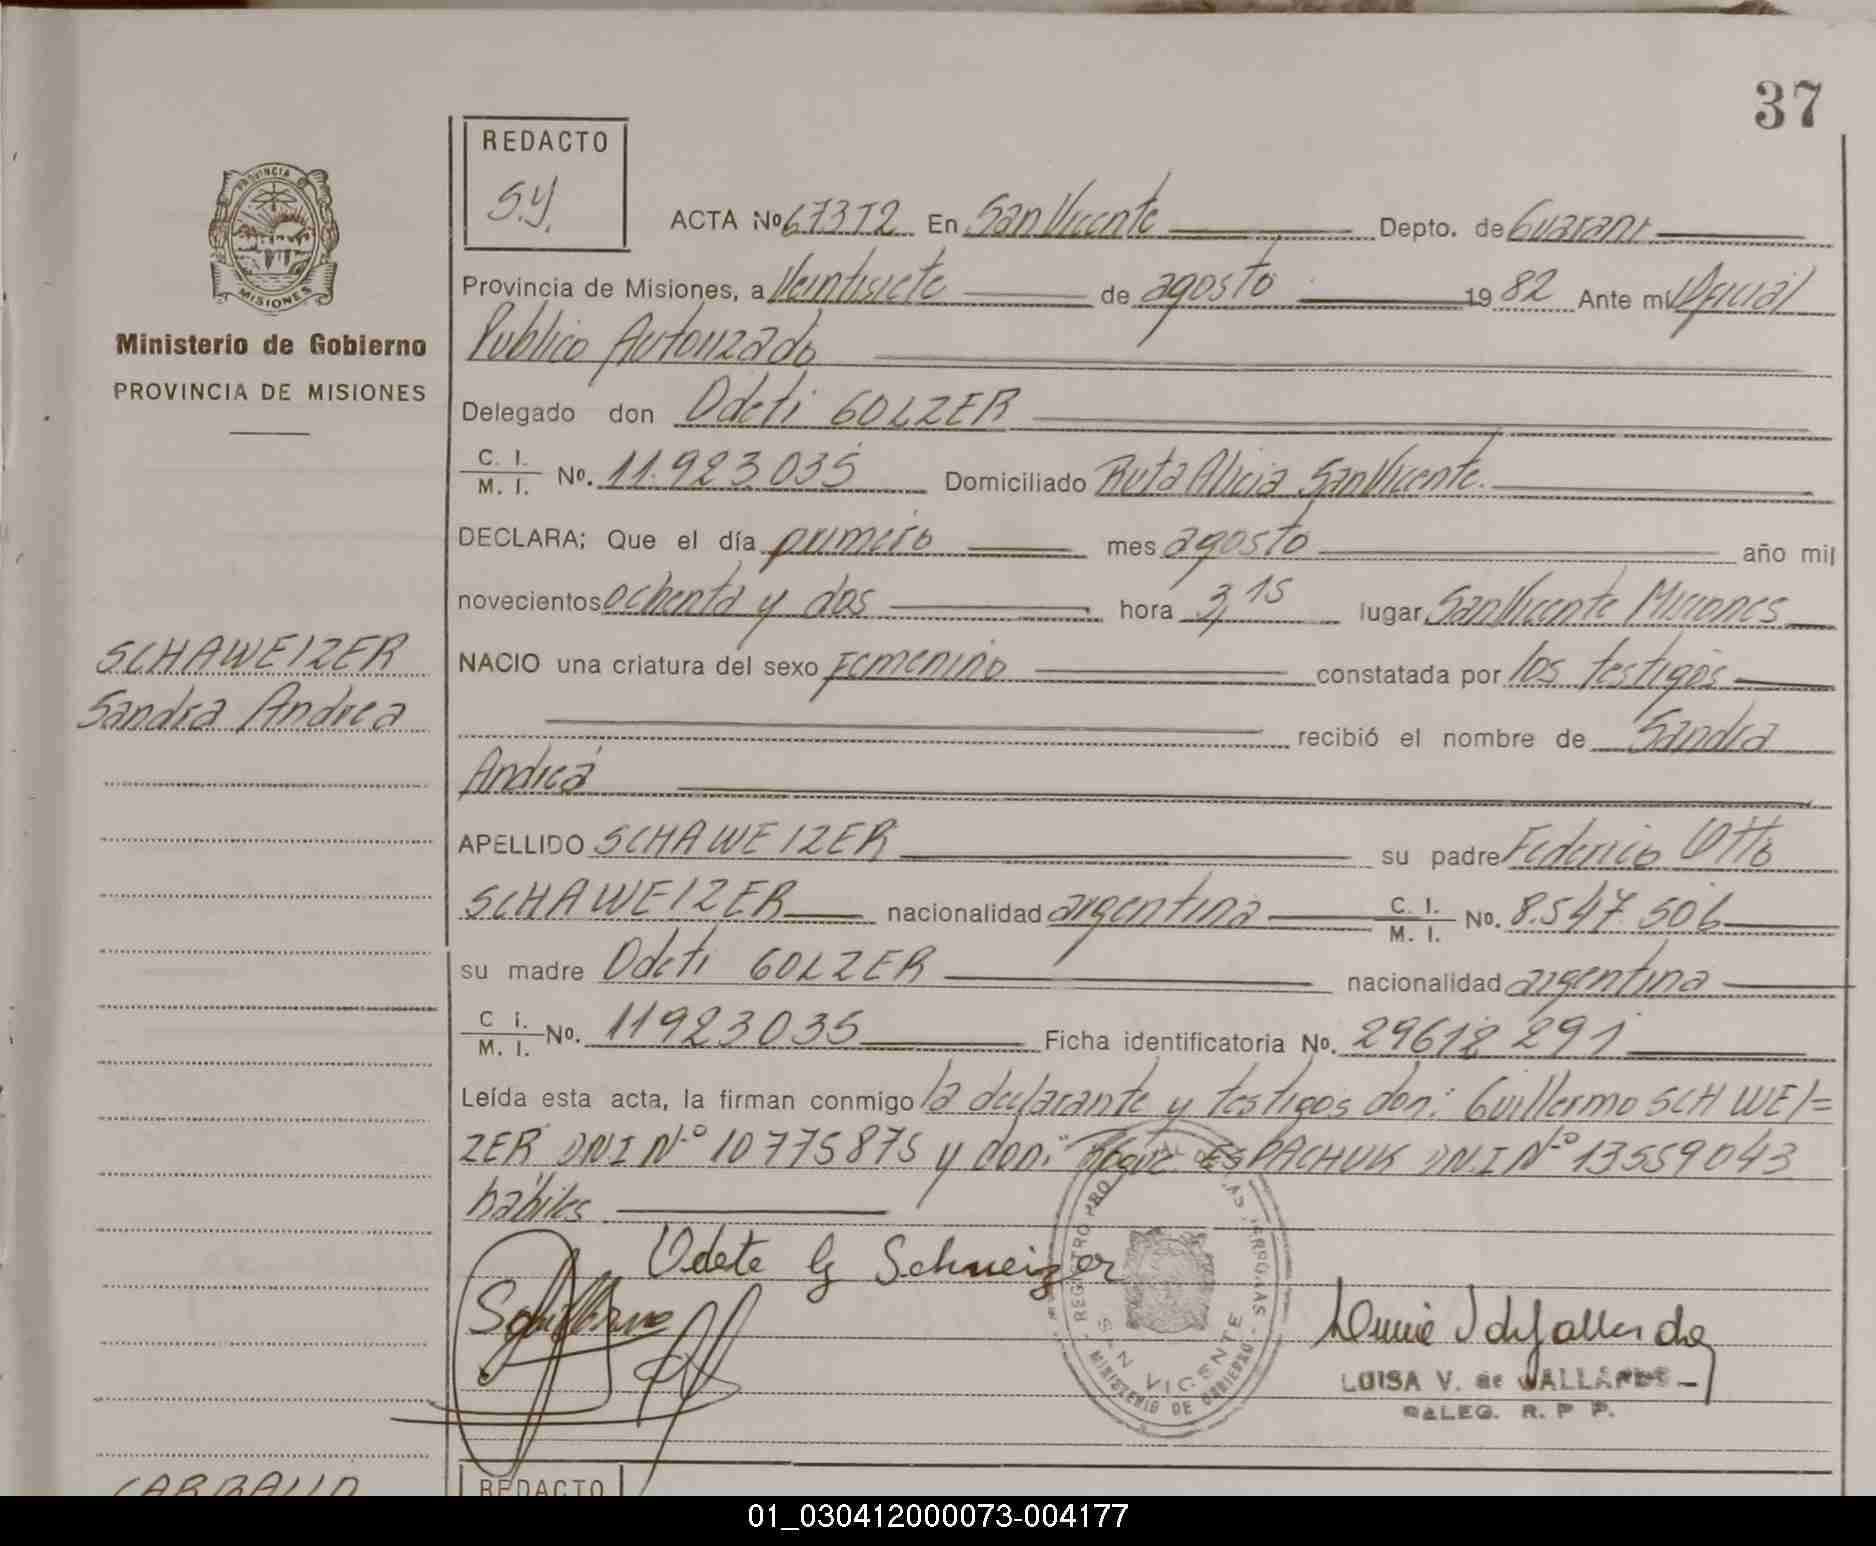 37
REDACTO
S.Y.
PROVINCIA
MISIONES
Ministerio de Gobierno
PROVINCIA DE MISIONES
ACTA Nº 67372 En San Vicente Depto. de Guarani
Provincia de Misiones, a Veintisiete de agosto 1982 Ante mi Oficial
Publico Autorizado
Delegado don Odeti GOLZER
C. I. / M. I. Nº. 11.923.035 Domiciliado Ruta Alicia San Vicente.
DECLARA; Que el día primero mes agosto año mil
novecientos ochenta y dos hora 3,15 lugar San Vicente Misiones
SCHAWEIZER
Sandra Andrea
NACIO una criatura del sexo Femenino constatada por los testigos
recibió el nombre de Sandra
Andrea
APELLIDO SCHAWEIZER su padre Federico Otto
SCHAWEIZER nacionalidad argentina C. I. / M. I. No. 8.547.506
su madre Odeti GOLZER nacionalidad argentina
C i. / M. I. Nº. 11923035 Ficha identificatoria Nº. 29612291
Leída esta acta, la firman conmigo la declarante y testigos don: Guillermo SCHWEI=
ZER DNI Nº 10775875 y don: ESPACHUK DN.I Nº 13559043
hábiles
Odete G Schweizer
SAN VICENTE
MINISTERIO DE GOBIERNO
LUISA V. de
DELEG. R. P P.
REDACTO
01_030412000073-004177